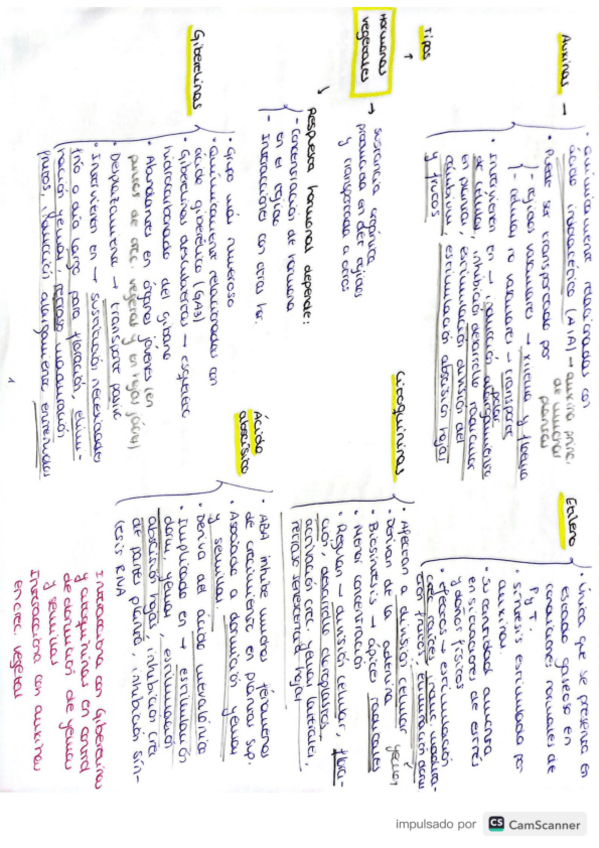 Hormonas
vegetales
→ sustancia orgánica
producida en det. tejidos
y transportada a otros
Respuesta hormonal depende:
- Concentración de hormona
en el tejido
- Interacciones con otras ho.
Tipos
Auxinas →
• Químicamente relacionadas con
ácido indolacético (AIA) → auxina princ.
de muchas
plantas
• Puede ser transportada por
- tejidos vasculares → xilema y floema
- células no vasculares → transporte
polar
• Intervienen en → inducción alargamiento
de células, inhibición desarrollo radicular
en plantas, estimulación división del
cámbium, estimulación abscisión hojas
y frutos
Giberelinas
• Grupo más numeroso
• Químicamente relacionadas con
ácido giberélico (GA3)
• Giberelinas descubiertas → esqueleto
hidrocarbonado del gibano
• Abundantes en órganos jóvenes (en
puntos de crec. vegetal y en hojas jóvenes)
• Desplazamiento → transporte pasivo
• Intervienen en → sustitución necesidades
frío o día largo para floración,
yemas, retraso maduración
frutos, inducción alargamiento entrenudos
Citoquininas
• Afectan a división celular
• Derivan de la adenina
• Biosíntesis → ápices radicales
yemas
• Menor concentración
• Regulan → división celular,
desarrollo cloroplastos,
activación crec. yemas laterales,
retraso senescencia hojas
Etileno
• Única que se presenta en
estado gaseoso en
condiciones normales de
P y T.
• Síntesis estimulada por
auxinas
• Su cantidad aumenta
en situaciones de estrés
y daños físicos
• Efectos → estimulación
Ácido
abscísico
• ABA inhibe muchos fenómenos
de crecimiento en plantas sup.
• Asociado a dormición yemas
y semillas
• Deriva del ácido mevalónico
• Implicado en → estimulación
dorm. yemas, estimulación
abscisión hojas, inhibición crec.
de partes planta, inhibición sín-
tesis RNA
Interacciona con Giberelinas
y citoquininas en control
de dormición de yemas
y semillas
Interacciona con auxinas
en crec. vegetal
1
impulsado por CS CamScanner